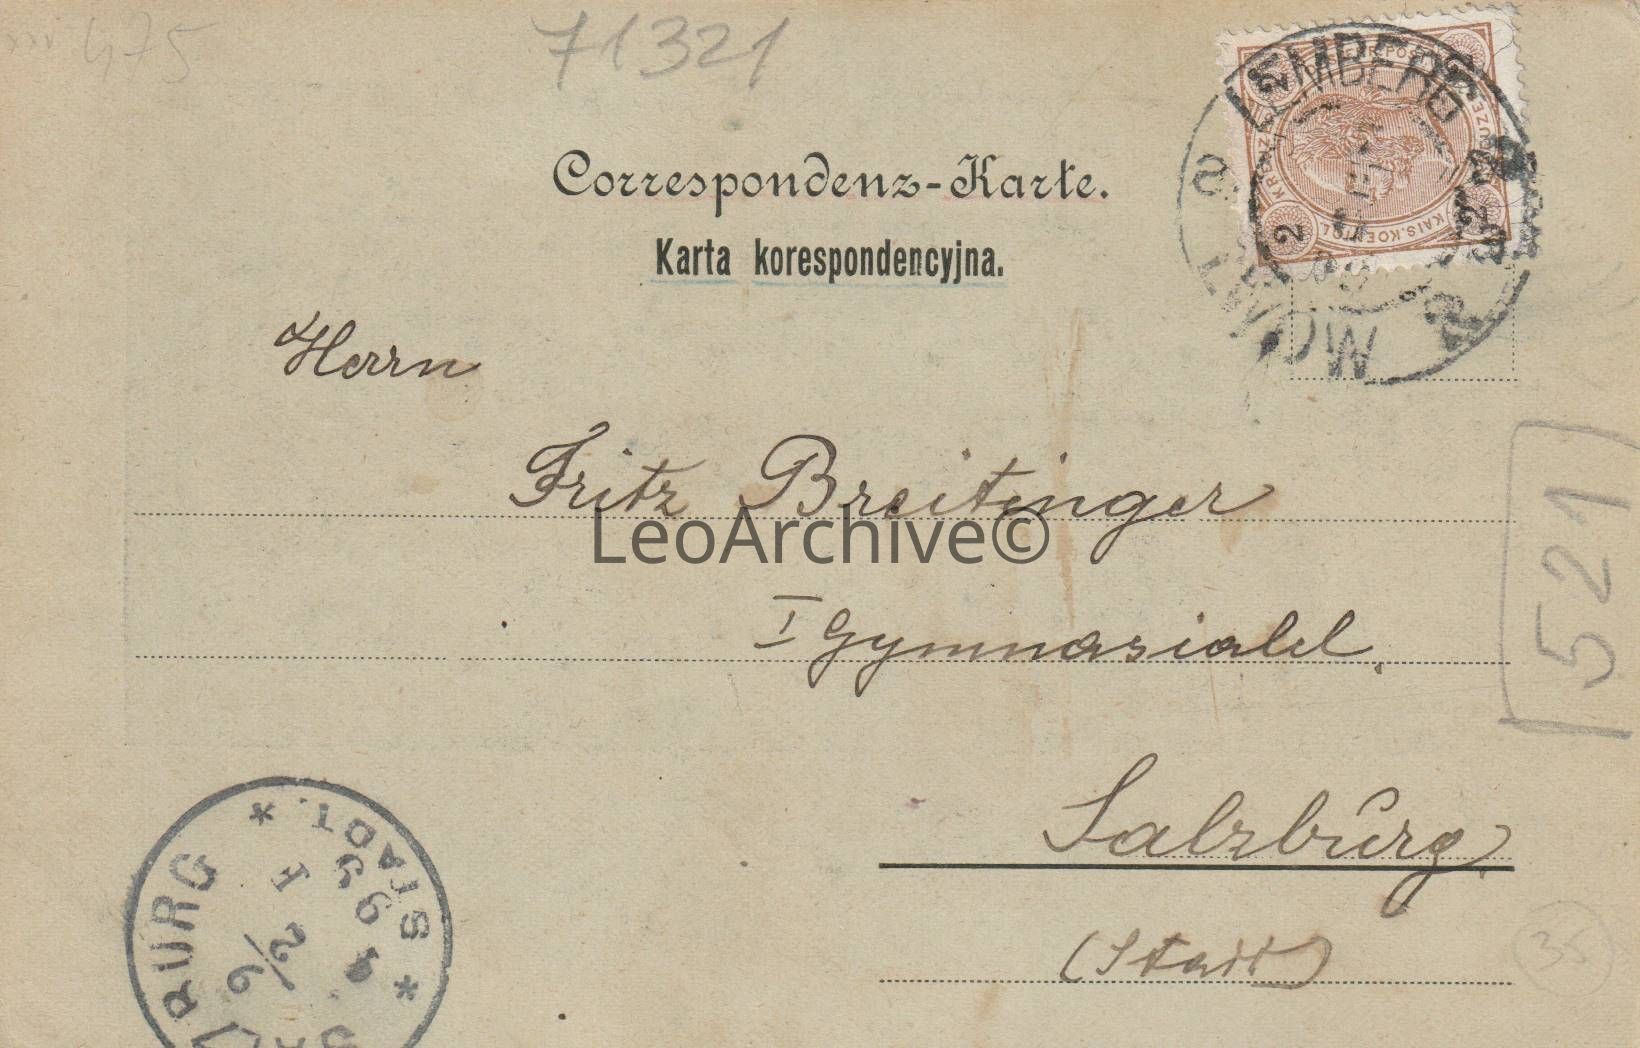 475
71321
Correspondenz-Karte.
Karta korespondencyjna.
LEMBERG
2
2
KAIS.KOENIGL
Herrn
Fritz Breitinger
LeoArchive©
I Gymnasialcl.
521
Salzburg
(Stadt)
35
STADT
99